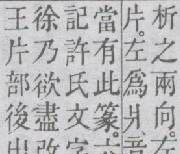 析之兩向。左
片。左爲爿、
當有此篆。六
記許氏文字
徐乃欲盡改
王片部後出